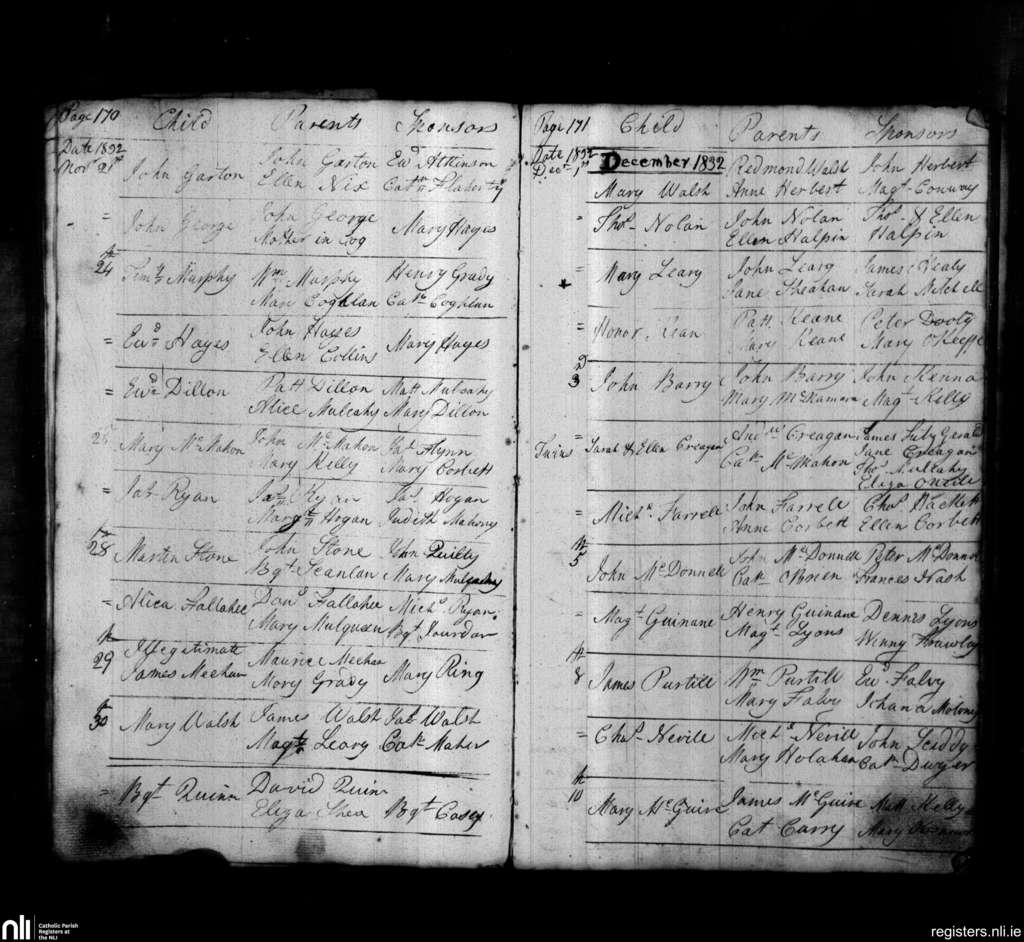 Page 170 Child Parents Sponsors
Date 1832
Novr 21st John Garton John Garton Ewd Atkinson
Ellen Nix Cathn Flaherty
= John George John George Mary Hayes
Mother in Cog
24th Timy Murphy Wm Murphy Henry Grady
Mary Coghlan Cathn Coghlan
= Ewd Hayes John Hayes Mary Hayes
Ellen Collins
= Ewd Dillon Patt Dillon Matt Mulcahy
Alice Mulcahy Mary Dillon
Mary McMahon John McMahon Jas Flynn
Mary Kelly Mary Corbett
= Jas Ryan Jas Ryan Jas Hogan
Margt Hogan Judith Mahony
28th Martin Stone John Stone John Quilty
Bgt Scanlan Mary Mulcahy
= Alica Fallahee Danl Fallahee Michl Ryan
Mary Mulqueen Bgt Jourdan
29th Illegitimate
James Meehan Maurice Meehan Mary Ring
Mary Grady
30th Mary Walsh James Walsh Jas Walsh
Magt Leary Cath Maher
= Bgt Quinn David Quinn
Eliza Shea Bgt Casey
Page 171 Child Parents Sponsors
Date 1832 December 1832
Decr 1st Mary Walsh Redmond Walsh John Herbert
Anne Herbert Magt Conway
= Thos Nolan John Nolan Thos & Ellen
Ellen Halpin Halpin
= Mary Leary John Leary James Healy
Jane Sheahan Sarah Mitchell
= Honor Kean Patt Keane Peter Dooly
Mary Keane Mary O'Keeffe
3d John Barry John Barry John Kenna
Mary McNamara Magt Kelly
= Twins Sarah & Ellen Creagan Andw Creagan James
Cath McMahon Jane Creagan
Thos Mulcahy
Eliza
= Michl Farrell John Farrell Chas Hackett
Anne Corbett Ellen Corbett
5th John McDonnell John McDonnell Peter McDonnell
Cath O'Brien Frances Nash
= Magt Guinane Henry Guinane Dennis Lyons
Magt Lyons Winny Frawley
8th James Purtill Wm Purtill Ewd Falvy
Mary Falvy Johana Molony
= Chas Nevill Michl Nevill John Sciddy
Mary Holahan Cath Dwyer
10th Mary McGuire James McGuire Matt Kelly
Cat Carry Mary
nli
Catholic Parish
Registers at
the NLI
registers.nli.ie